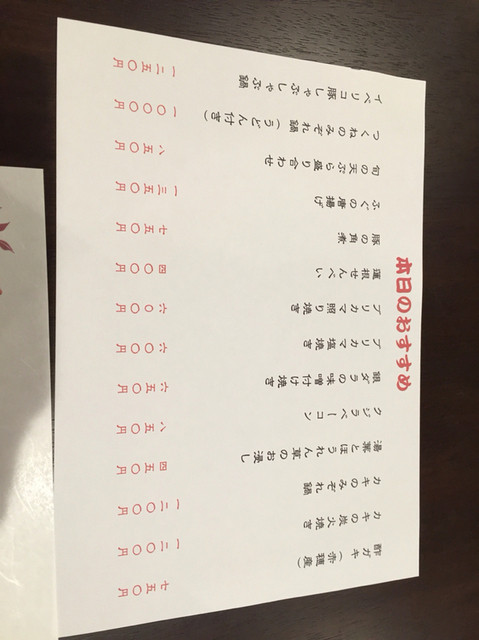 本日のおすすめ
酢ガキ（赤穂産） 七五〇円
カキの炭火焼き 一二〇〇円
カキのみぞれ鍋 一二〇〇円
湯葉とほうれん草のお浸し 四五〇円
クジラベーコン 八五〇円
銀ダラの味噌付け焼き 六五〇円
ブリカマ塩焼き 六〇〇円
ブリカマ照り焼き 六〇〇円
蓮根せんべい 四〇〇円
豚の角煮 七五〇円
ふぐの唐揚げ 一二五〇円
旬の天ぷら盛り合わせ 八五〇円
つくねのみぞれ鍋（うどん付き） 一〇〇〇円
イベリコ豚しゃぶしゃぶ鍋 一二五〇円